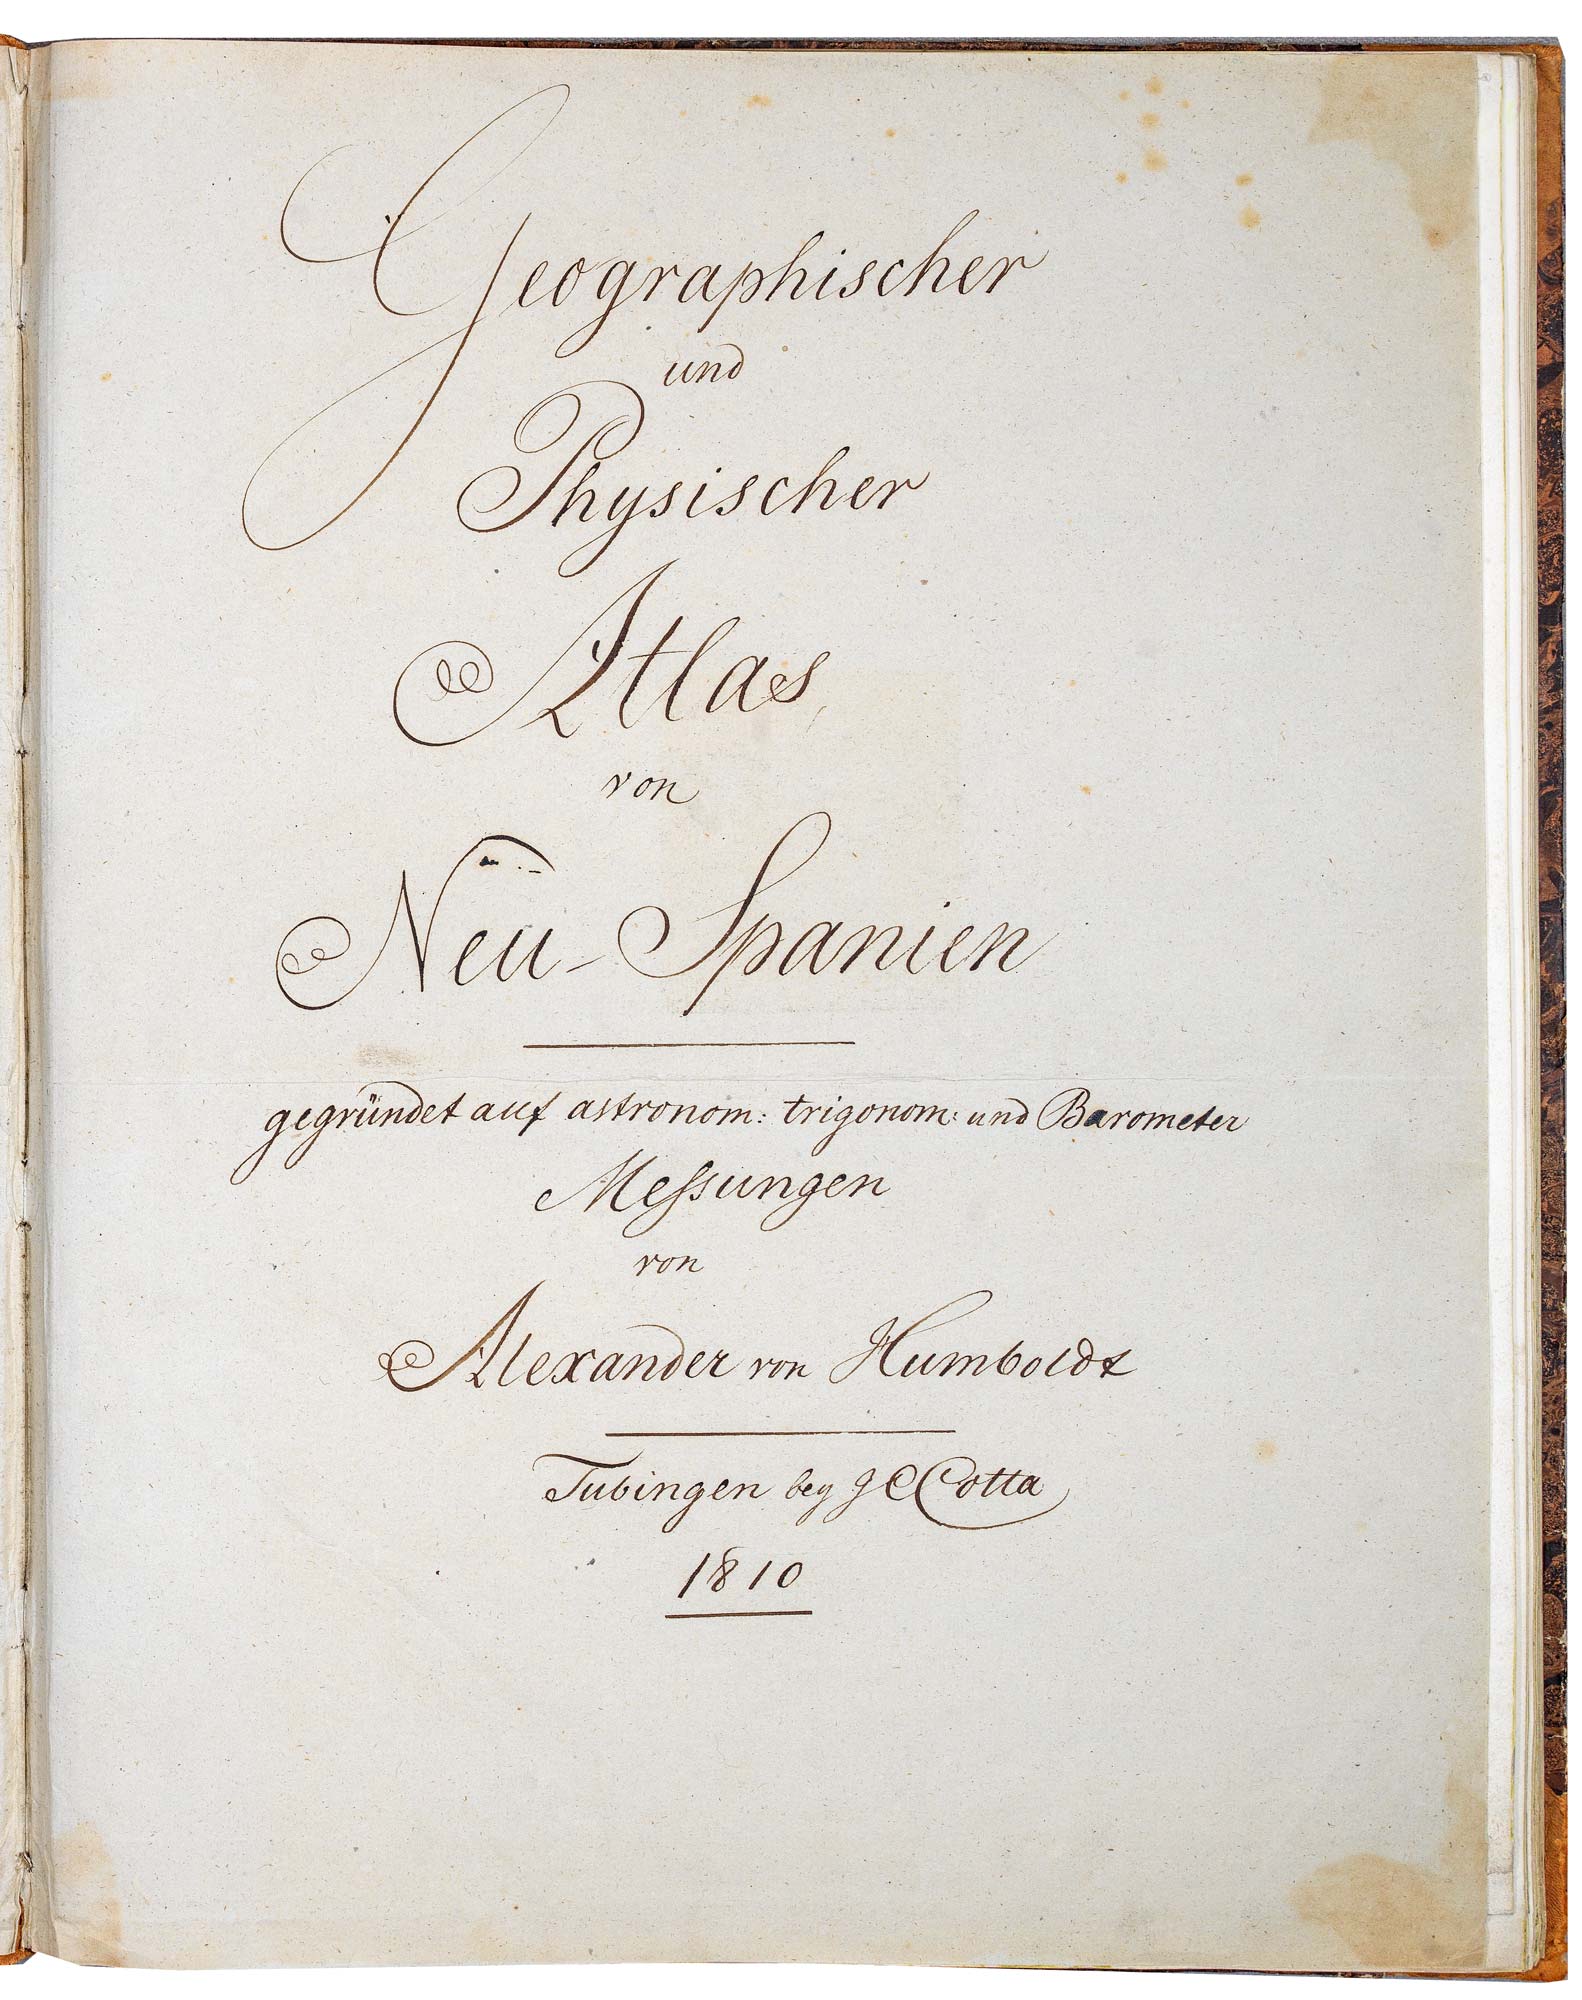 Geographischer
und
Physischer
Atlas
von
Neu-Spanien
gegründet auf astronom: trigonom: und Barometer
Messungen
von
Alexander von Humboldt
Tubingen bey J C Cotta
1810